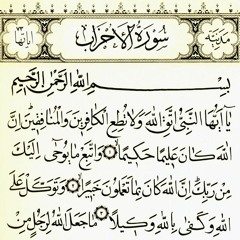 سُورَةُ الْأَحْزَابِ
بِسْمِ اللَّهِ الرَّحْمَٰنِ الرَّحِيمِ
يَا أَيُّهَا النَّبِيُّ اتَّقِ اللَّهَ وَلَا تُطِعِ الْكَافِرِينَ وَالْمُنَافِقِينَ إِنَّ
اللَّهَ كَانَ عَلِيمًا حَكِيمًا وَاتَّبِعْ مَا يُوحَىٰ إِلَيْكَ
مِنْ رَبِّكَ إِنَّ اللَّهَ كَانَ بِمَا تَعْمَلُونَ خَبِيرًا وَتَوَكَّلْ عَلَى
اللَّهِ وَكَفَىٰ بِاللَّهِ وَكِيلًا مَا جَعَلَ اللَّهُ لِرَجُلٍ مِنْ